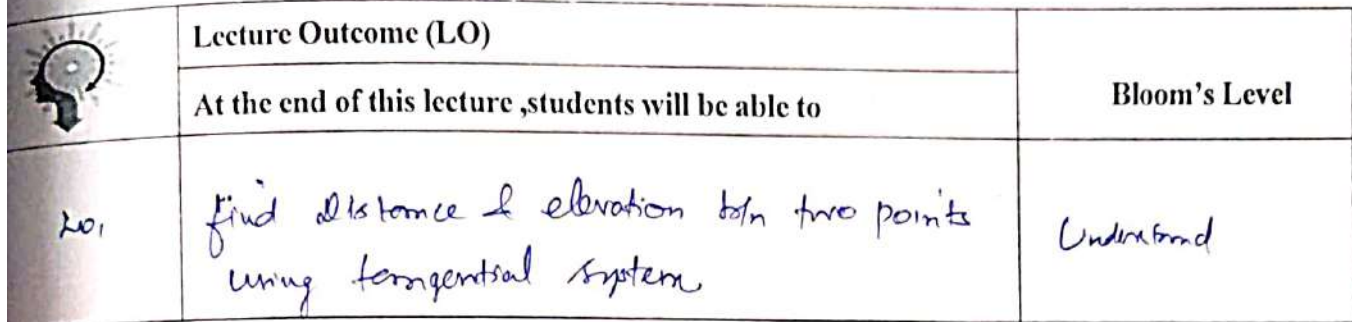 Lecture Outcome (LO)
At the end of this lecture ,students will be able to
Bloom's Level
LO1
find distance & elevation b/n two points
using tangential system.
Understand